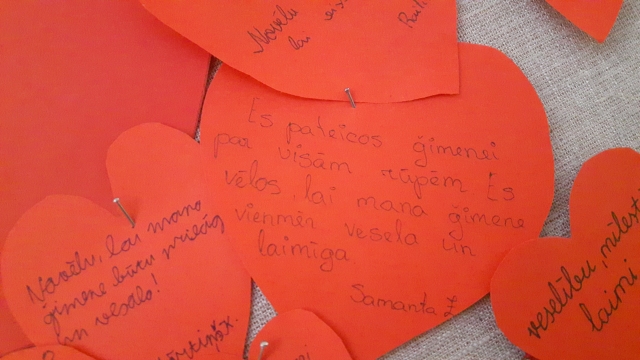 Novēlu
lai
Es pateicos ģimenei
par visām rūpēm Es
vēlos lai mana ģimene
vienmēr vesela un
laimīga
Samanta Ž
Novēlu, lai mana
ģimene būtu priecīg
un vesala!
veselību, mīlest
laimi